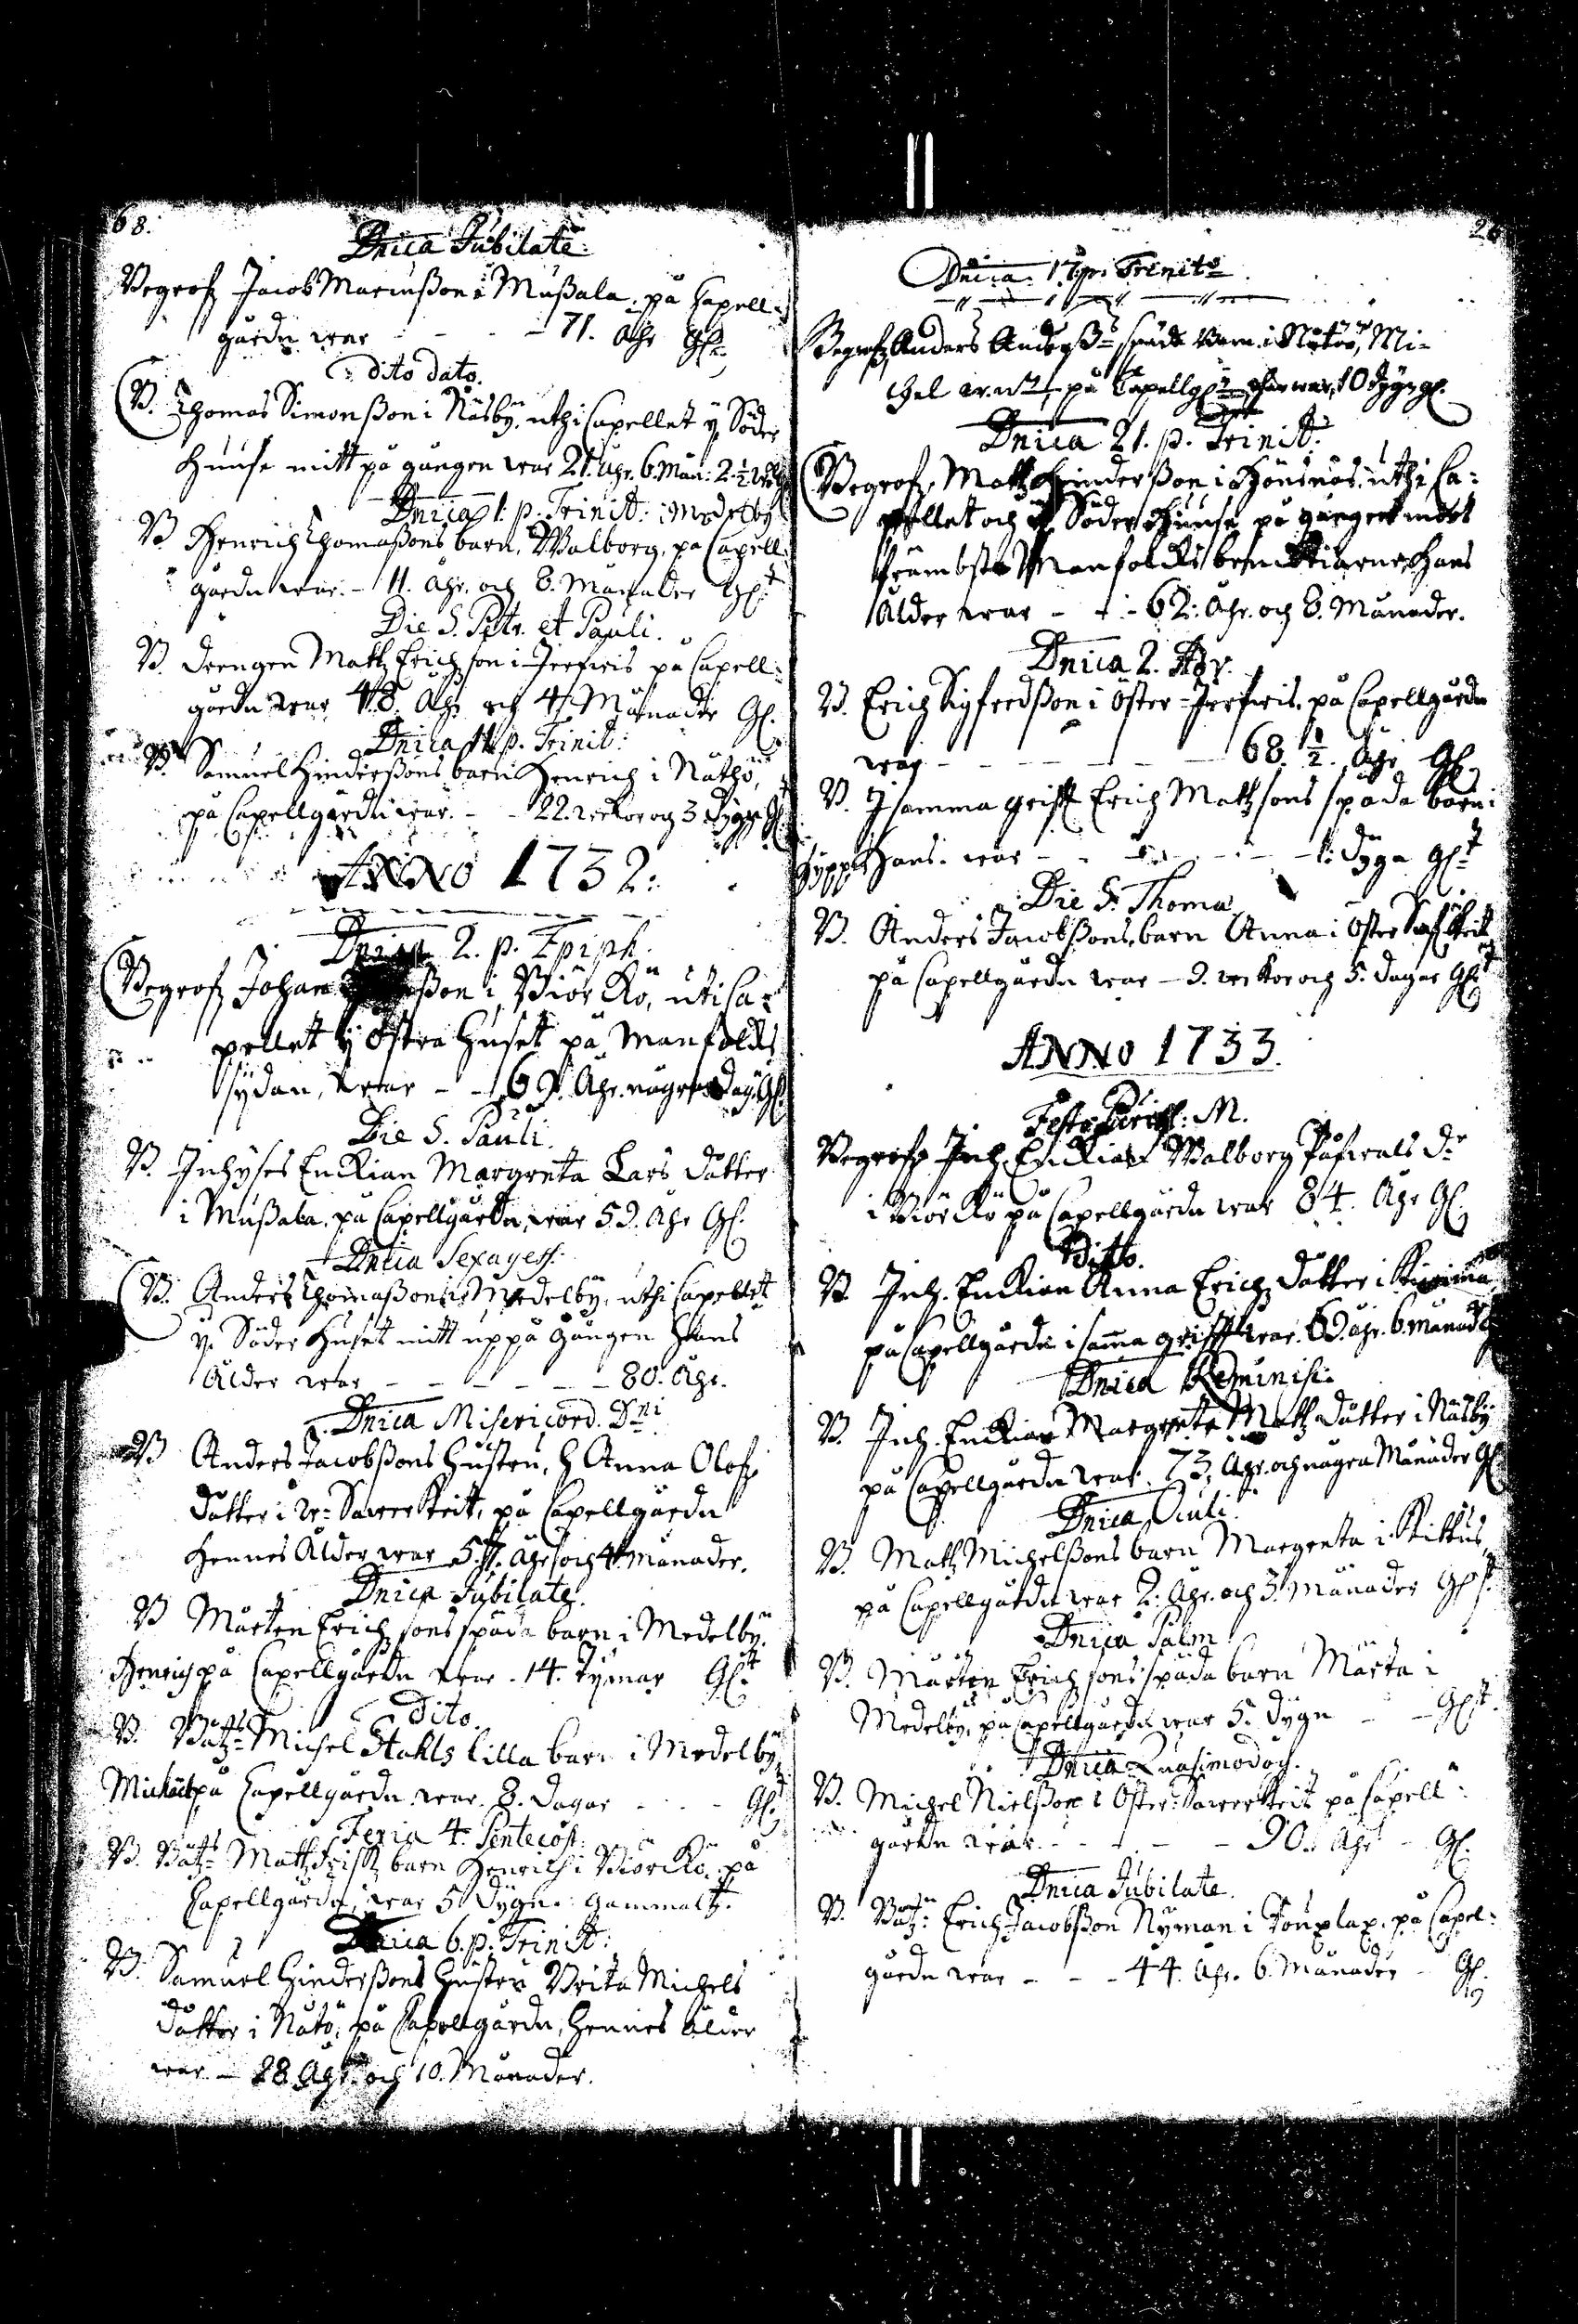 68.
Dnica Jubilate
Begrofz Jacob Marcusson i Mussala på Capell-
gården war - - - 71. Åhr Gl.
Dito dato.
B. Thomas Simonsson i Näsby uthi Capellet y Söder
huuse mitt på gången war 21. åhr. 6. Mån: 2 1/2
Dnica 1. p. Trinit: i Medelby
B. Henrich Thomassons barn, Walborg, på Capell-
gården war - 11. åhr och 8. Månader Gl.t
Die S. Petr. et Pauli.
B. drengen Mattz Erichson i Jerfwis på Capell-
gården war 48. åhr och 4. Månader Gl.
Dnica p. Trinit:
B. Samuel Hinderssons barn Henrich i Nåthö,
på Capellgården war - - 22. weckor och 3 dygn Gl.
ANNO 1732.
Dnica 2. p. Epiph.
Begrofz Johan i Biörkö, uti Ca-
pellet y östra huset på Manfolcks
sydan, war - - 69. Åhr några dag. Gl.
Die S. Pauli.
B. Inhyses Enckian Margreta Lars dotter
i Mussala, på Capellgården, war 59. Åhr Gl.
Dnica Sexages.
B. Anders Thomasson i Medelby, uthi Capellet
y. Söder huset mitt uppå gången hans
ålder war - - - - - 80. åhr.
Dnica Misericord. Dni
B Anders Jacobssons hustru, h Anna Olofz
dotter i W: Sawerkeit, på Capellgården
hennes ålder war 57. åhr och 4. månader.
Dnica Jubilate.
B Mårten Erichsons späda barn i Medelby
Henrich på Capellgården war 14. Tijmar Gl.t
Dito.
B. Båtz- Michel Stahls lilla barn i Medelby
Michael på Capellgården war 8. dagar - - - Gl.
Feria 4. Pentecos:
B. Båtz- Mattz Frisks barn Henrich i Biörkö på
Capellgården, war 5 Dygn gammalt.
Dnica 6. p. Trinit:
B. Samuel Hinderssons hustru Brita Michels
dotter i Nåtö, på Capellgården, hennes ålder
war - 28 åhr och 10. Månader.
Dnica 17. p. Trinit
Begrofz Anders Anderss: späda barn i Nåtöö, Mi-
chel på Capellg. war, 10 dygn gl.
Dnica 21. p. Trinit:
Begrofz Mattz Hindersson i Hönsnäs, uthi Ca-
pellet och y Söder huuse på gången moot
främbsta Manfolcks benckiarne hans
ålder war - - - 62: åhr och 8. Månader.
Dnica 2. Adv.
B. Erich Sigfredsson i Öster-Jerfwis, på Capellgården
war - - - - - - 68. 1/2. Åhr Gl.
B. I samma grift Erich Mattzsons späda barn i
Hyppe Hans war - - - - - 1: dygn gl.t
Die S. Thomæ
B. Anders Jacobssons barn Anna i Öster Sawerkeit
på Capellgården war - 9. weckor och 5. dagar Gl.t
ANNO 1733.
Festo Purif: M.
Begrofz Inh. Enckian Walborg Påfwals dr
i Biörkö på Capellgården war 84. åhr Gl.
Ditto.
B. Inh. Enckian Anna Erichz dotter i
på Capellgården i samma grifft war 69. åhr. 6. månad
Dnica Reminis:
B. Inh. Enckian Margreta Mattz dotter i Näsby
på Capellgården war 73, åhr och några Månader Gl
Dnica Oculi.
B. Mattz Michelssons barn Margreta i Kittus
på Capellgården war 2. åhr och 3. månader Gl.t
Dnica Palm
B. Mårten Erichsons späda barn Märta i
Medelby, på Capellgården war 5. dygn - - Gl.t
Dnica Quasimodog.
B. Michel Nielsson i Öster-Sawerkeit på Capell-
gården war - - - - 90. Åhr - Gl.
Dnica Jubilate.
B. Båtz: Erich Jacobsson Nyman i på Capel-
gården war - - - 44. åhr. 6. Månader - Gl.